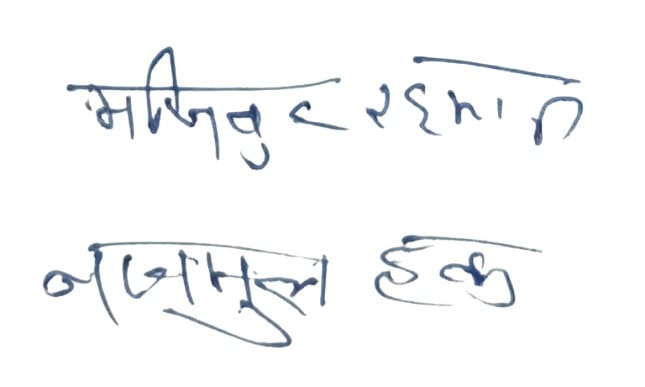 मजिबुर रहमान
नजमुल हक